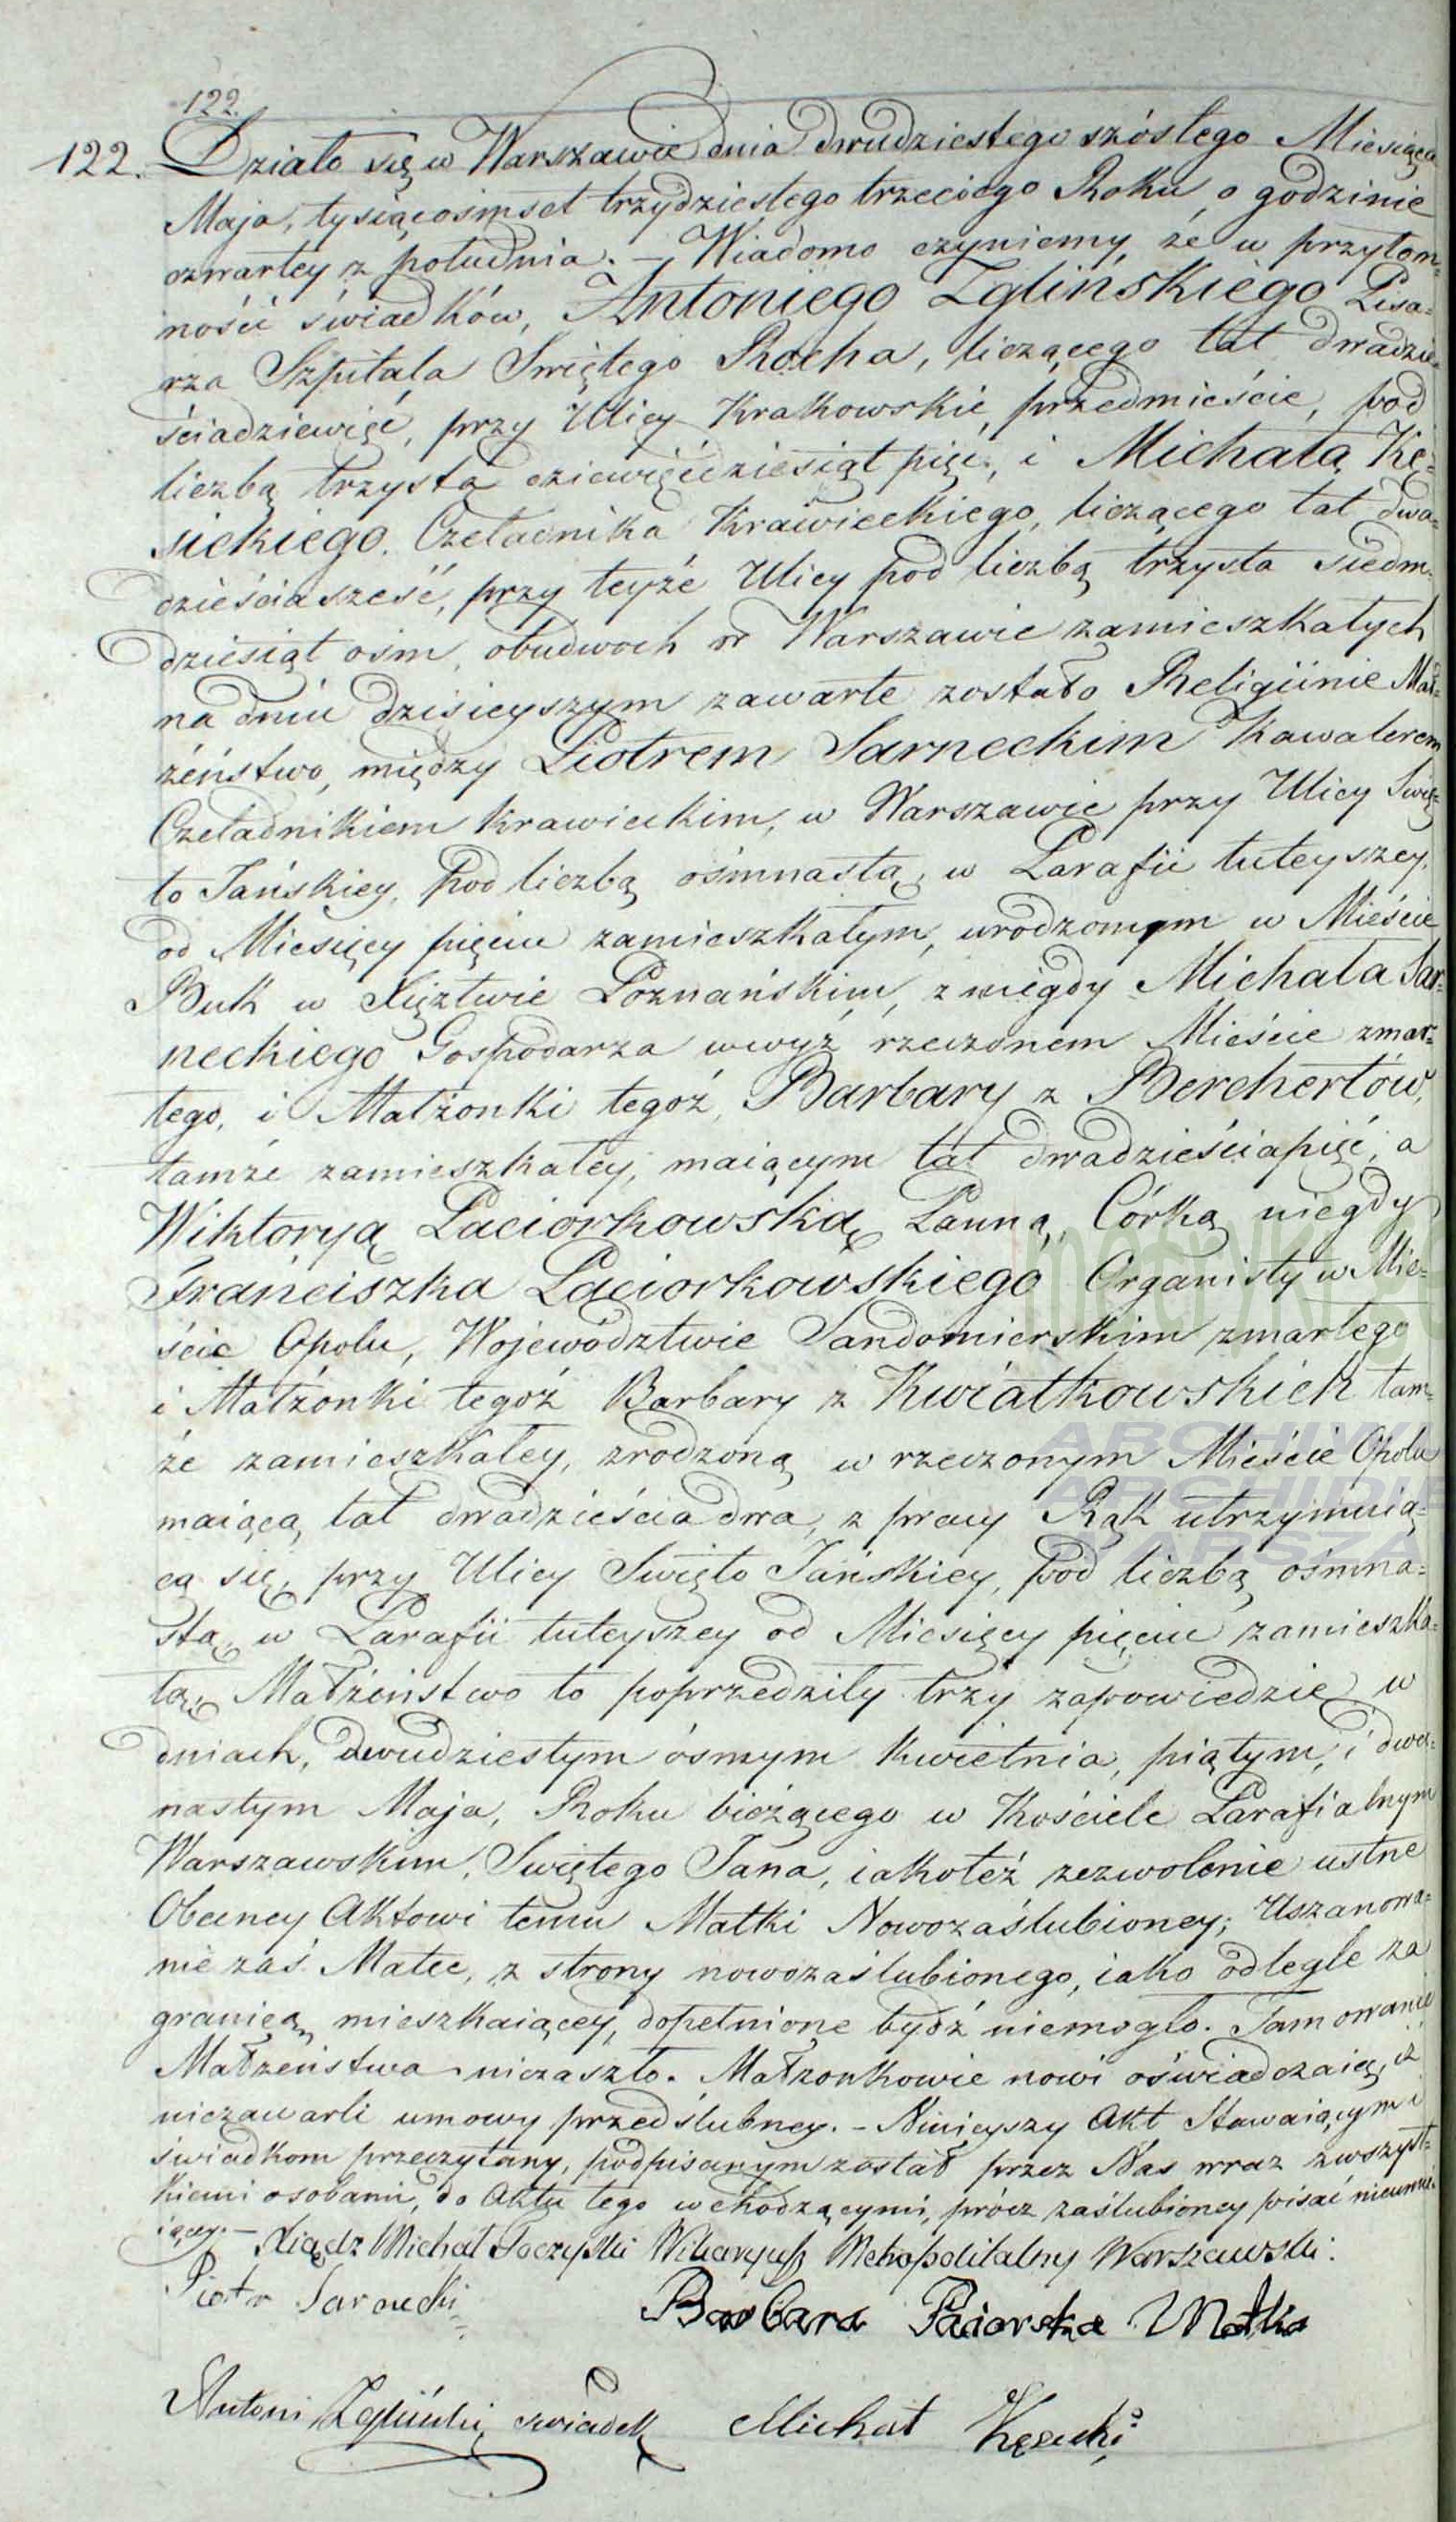 122.
122. Działo się w Warszawie dnia dwudziestego szóstego Miesiąca
Maja, tysiąc ośmset trzydziestego trzeciego Roku, o godzinie
czwartey z południa. – Wiadomo czyniemy, że w przytom=
ności świadków, Antoniego Zglińskiego Pisa=
rza Szpitala Swiętego Rocha, liczącego lat dwadzie=
ściadziewięć, przy Ulicy Krakowskie przedmieście, pod
liczbą trzysta dziewięćdziesiąt pięć, i Michała Kę=
sickiego. Czeladnika Krawieckiego, liczącego lat dwa=
dzieścia sześć, przy teyże Ulicy pod liczbą trzysta siedm=
dziesiąt ośm, obudwoch w Warszawie zamieszkałych
na dniu dzisieyszym zawarte zostało Religiinie Mał=
żeństwo, między Piotrem Sarneckim Kawalerem
Czeladnikiem krawieckim, w Warszawie przy Ulicy Swię=
to Jańskiey, pod liczbą ośmnastą, w Parafii tuteyszey,
od Miesięcy pięciu zamieszkałym, urodzonym w Mieście
Buk w Xięztwie Poznańskim, z niegdy Michała Sar=
neckiego Gospodarza wwyż rzeczonem Mieście zmar=
łego, i Małżonki tegoż, Barbary z Berchertów,
tamże zamieszkałey, maiącym lat dwadzieściapięć, a
Wiktoryą Paciorkowską Panną, Córką niegdy
Franciszka Paciorkowskiego Organisty w Mie=
ście Opolu, Województwie Sandomierskim zmarłego
i Małżonki tegoż Barbary z Kwiatkowskich tam=
że zamieszkałey, zrodzoną w rzeczonym Mieście Opolu
maiącą lat dwadzieścia dwa, z pracy Rąk utrzymuią=
cą się, przy Ulicy Swięto Jańskiey, pod liczbą ośmna=
stą, w Parafii tuteyszey od Miesięcy pięciu zamieszka=
łą. Małżeństwo to poprzedziły trzy zapowiedzie w
dniach, dwudziestym ósmym Kwietnia, piątym, i dwu=
nastym Maja, Roku bieżącego w Kościele Parafialnym
Warszawskim, Swiętego Jana, iakoteż zezwolenie ustne
Obecney Aktowi temu Matki Nowozaślubioney; Uszanowa=
nie zaś Matce, z strony nowozaślubionego, iako odlegle za
granicą mieszkaiącey, dopełnione bydź niemogło. Tamowanie
Małżeństwa niezaszło. Małżonkowie nowi oświadczaią, iż
niezawarli umowy przedślubney. – Ninieyszy Akt Stawaiącym i
świadkom przeczytany, podpisanym został przez Nas wraz zwszyst=
kiemi osobami, do Aktu tego wchodzącymi, prócz zaślubioney pisać nieumie=
iącey. – Xiądz Michał Wikaryusz Metropolitalny Warszawski.
Piotr Sarnecki
Barbara Paciorska Matka
Antoni Zgliński świadek Michał Kęsicki
metryki.g
ARCHIWU
ARCHIDIE
WARSZA